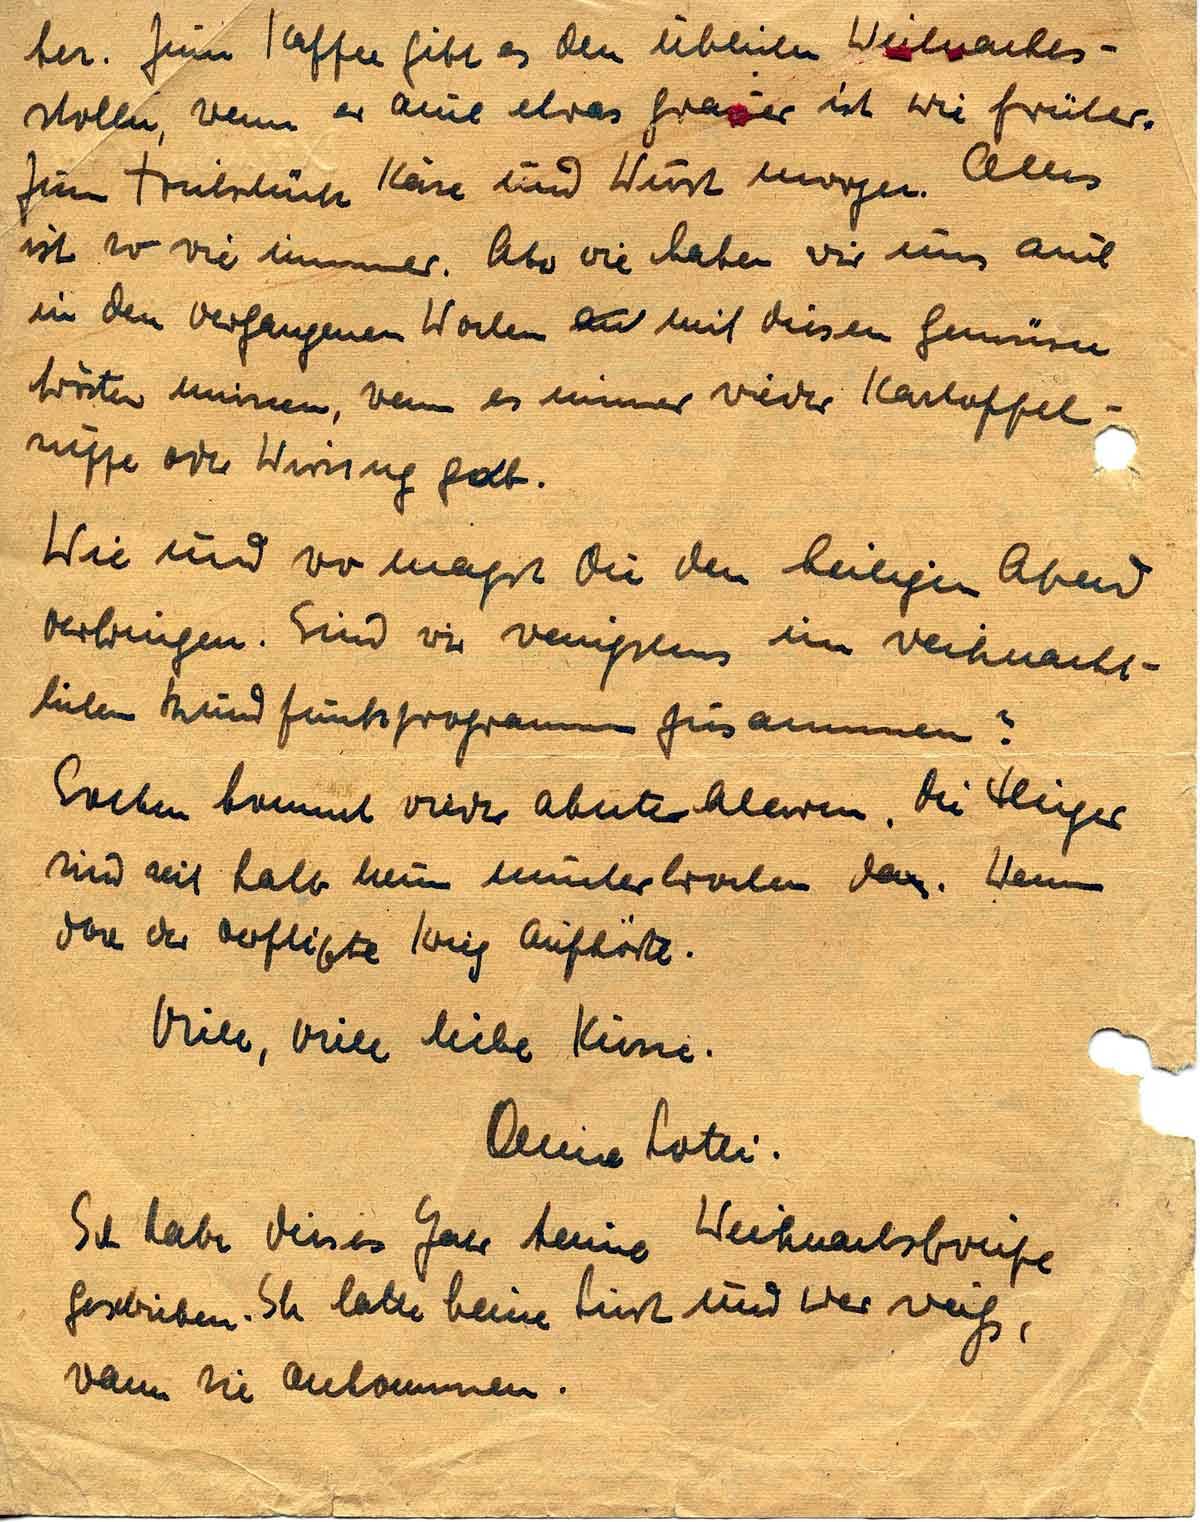 ber. Zum Kaffee gibt es den üblichen Weihnachts-
stollen, wenn er auch etwas grauer ist wie früher.
Zum Frühstück Käse und Wurst morgen. Alles
ist so wie immer. Also wie haben wir uns auch
in den vergangenen Wochen mit diesen Genüssen
trösten müssen, wenn es immer wieder Kartoffel-
suppe oder Wirsing gab.
Wie und wo magst Du den heiligen Abend
verbringen. Sind wir wenigstens im weihnacht-
lichen Rundfunksprogramm zusammen?
Soeben kommt wieder akuter Alarm, die Flieger
sind seit halb neun ununterbrochen da. Wenn
doch der verflixte Krieg aufhörte.
Viele, viele liebe Küsse.
Deine Lotti.
Ich habe dieses Jahr keine Weihnachtsbriefe
geschrieben. Ich hatte keine Lust und wer weiß,
wann sie ankommen.